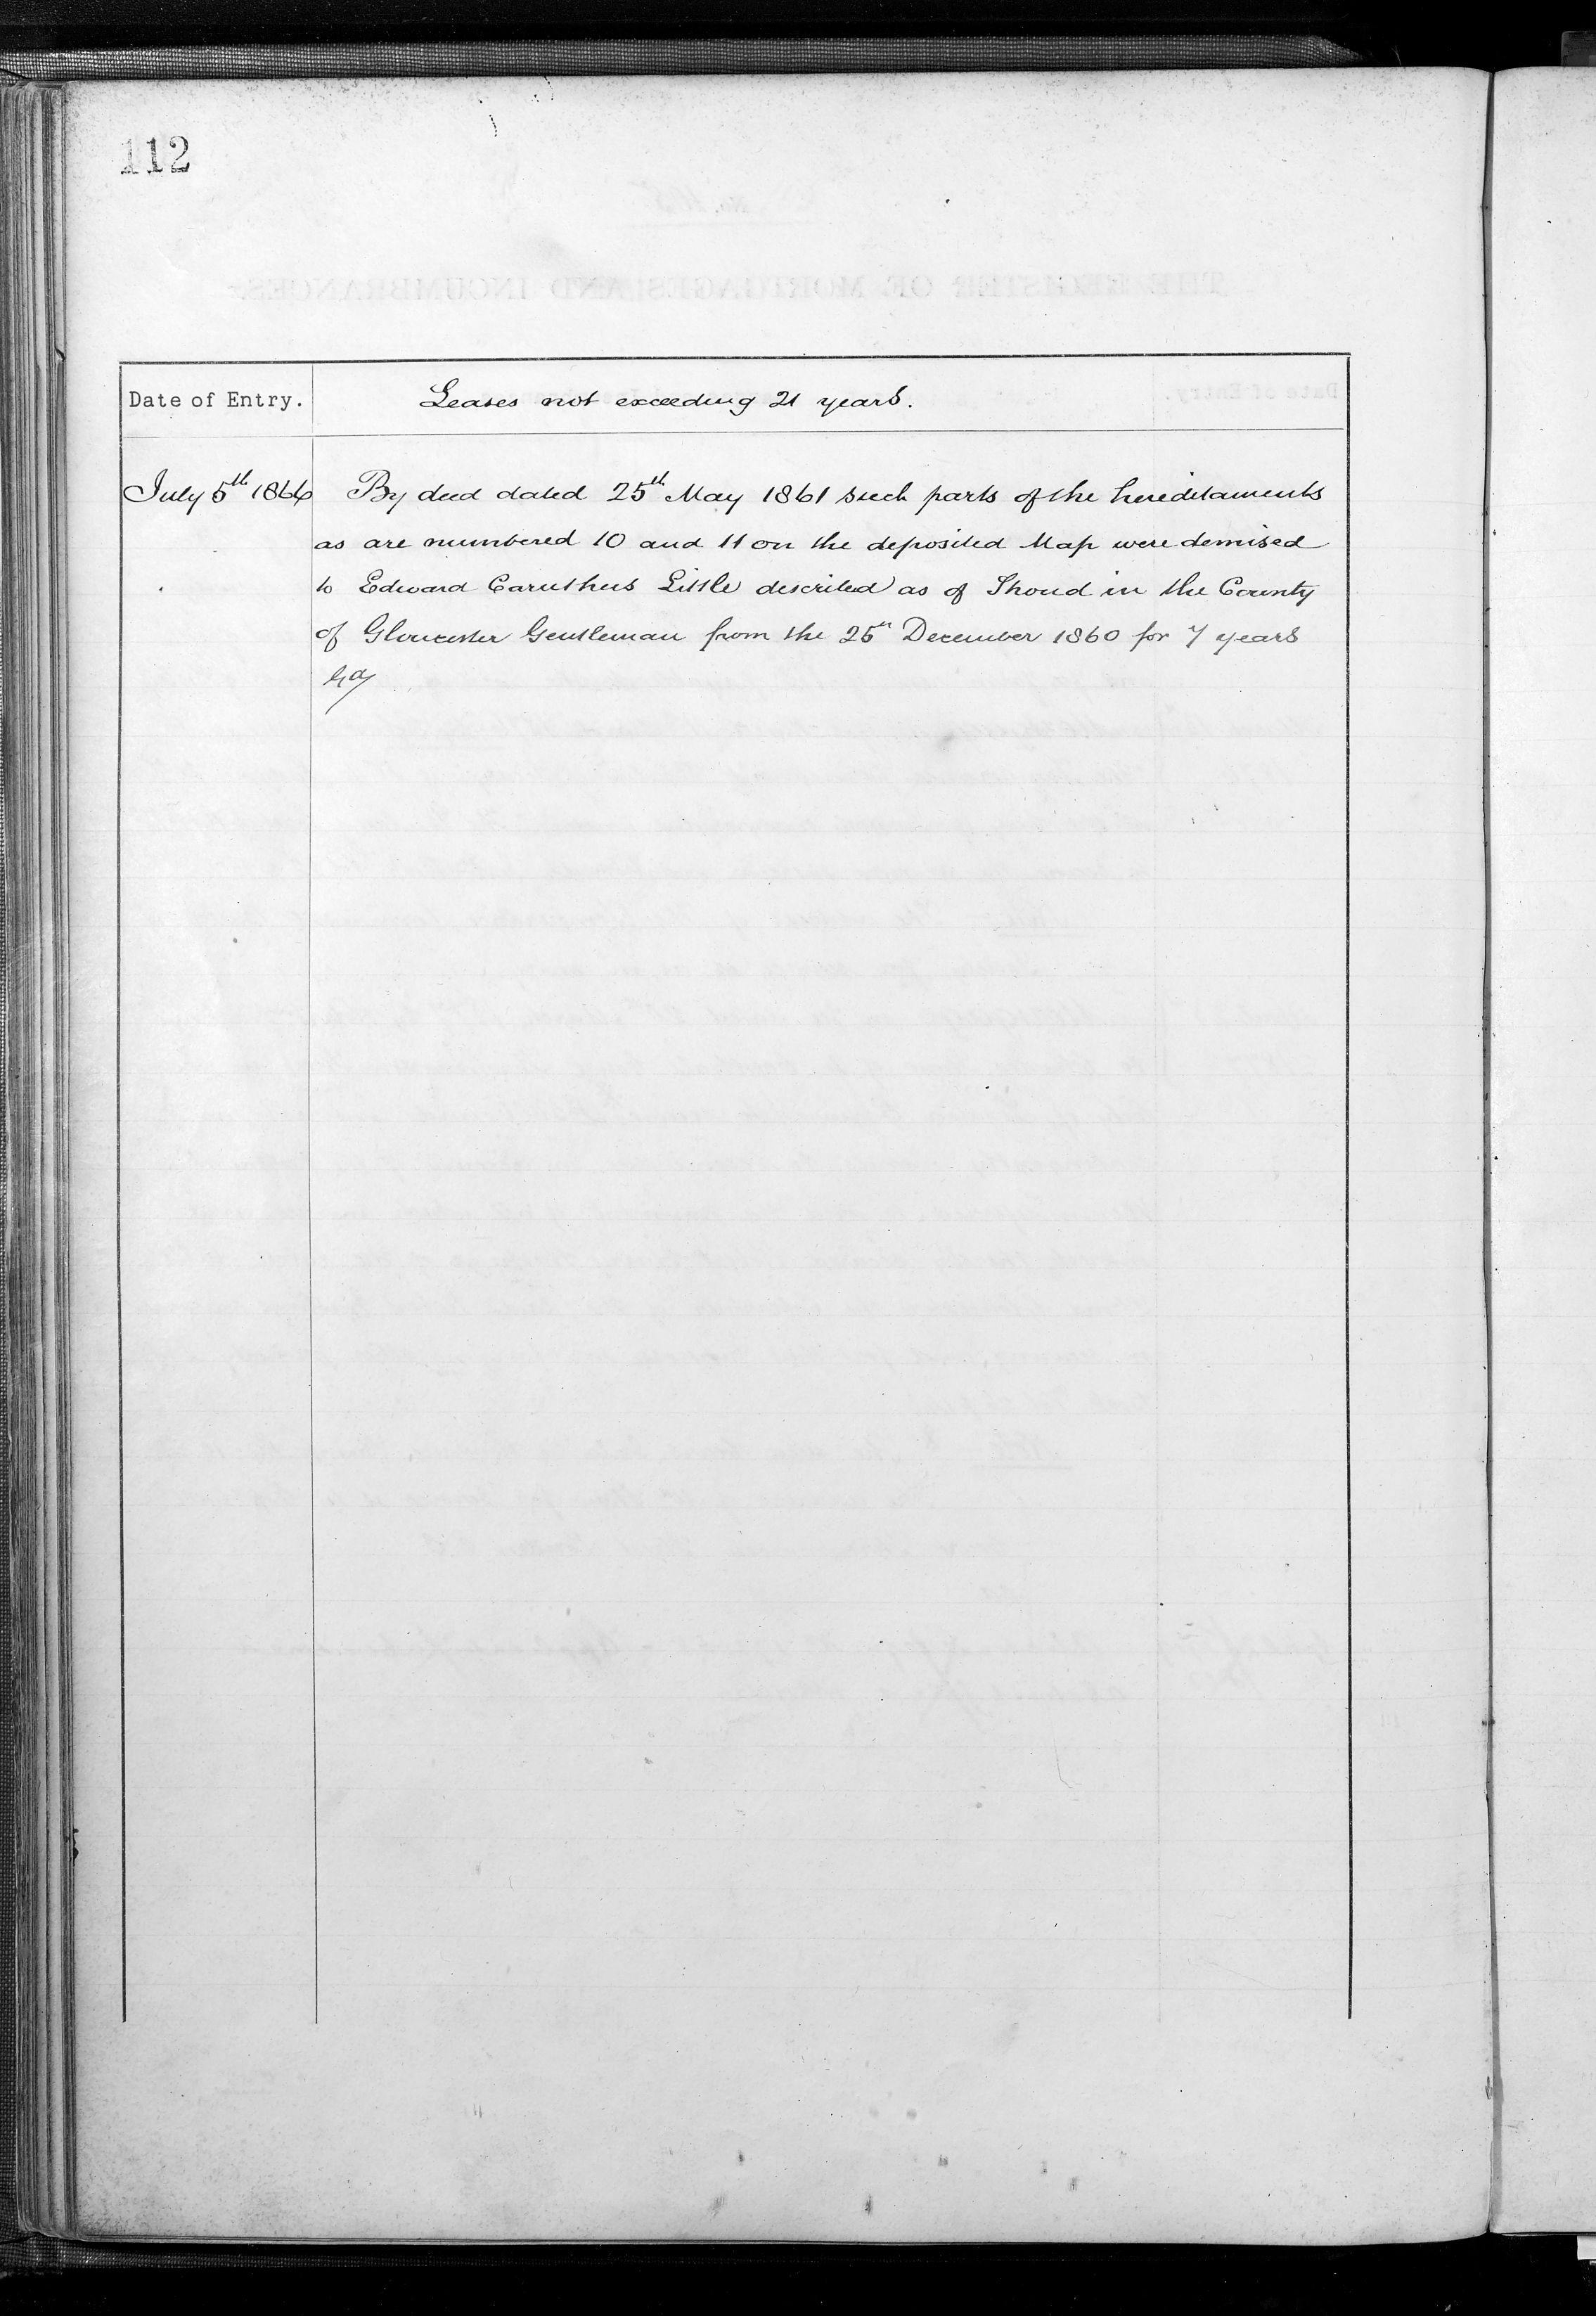 112
Date of Entry.
Leases not exceeding 21 years.
July 5th 1866
By deed dated 25th May 1861 such parts of the hereditaments
as are numbered 10 and 11 on the deposited Map were demised
to Edward Caruthers Little described as of Stroud in the County
of Gloucester Gentleman from the 25th December 1860 for 7 years